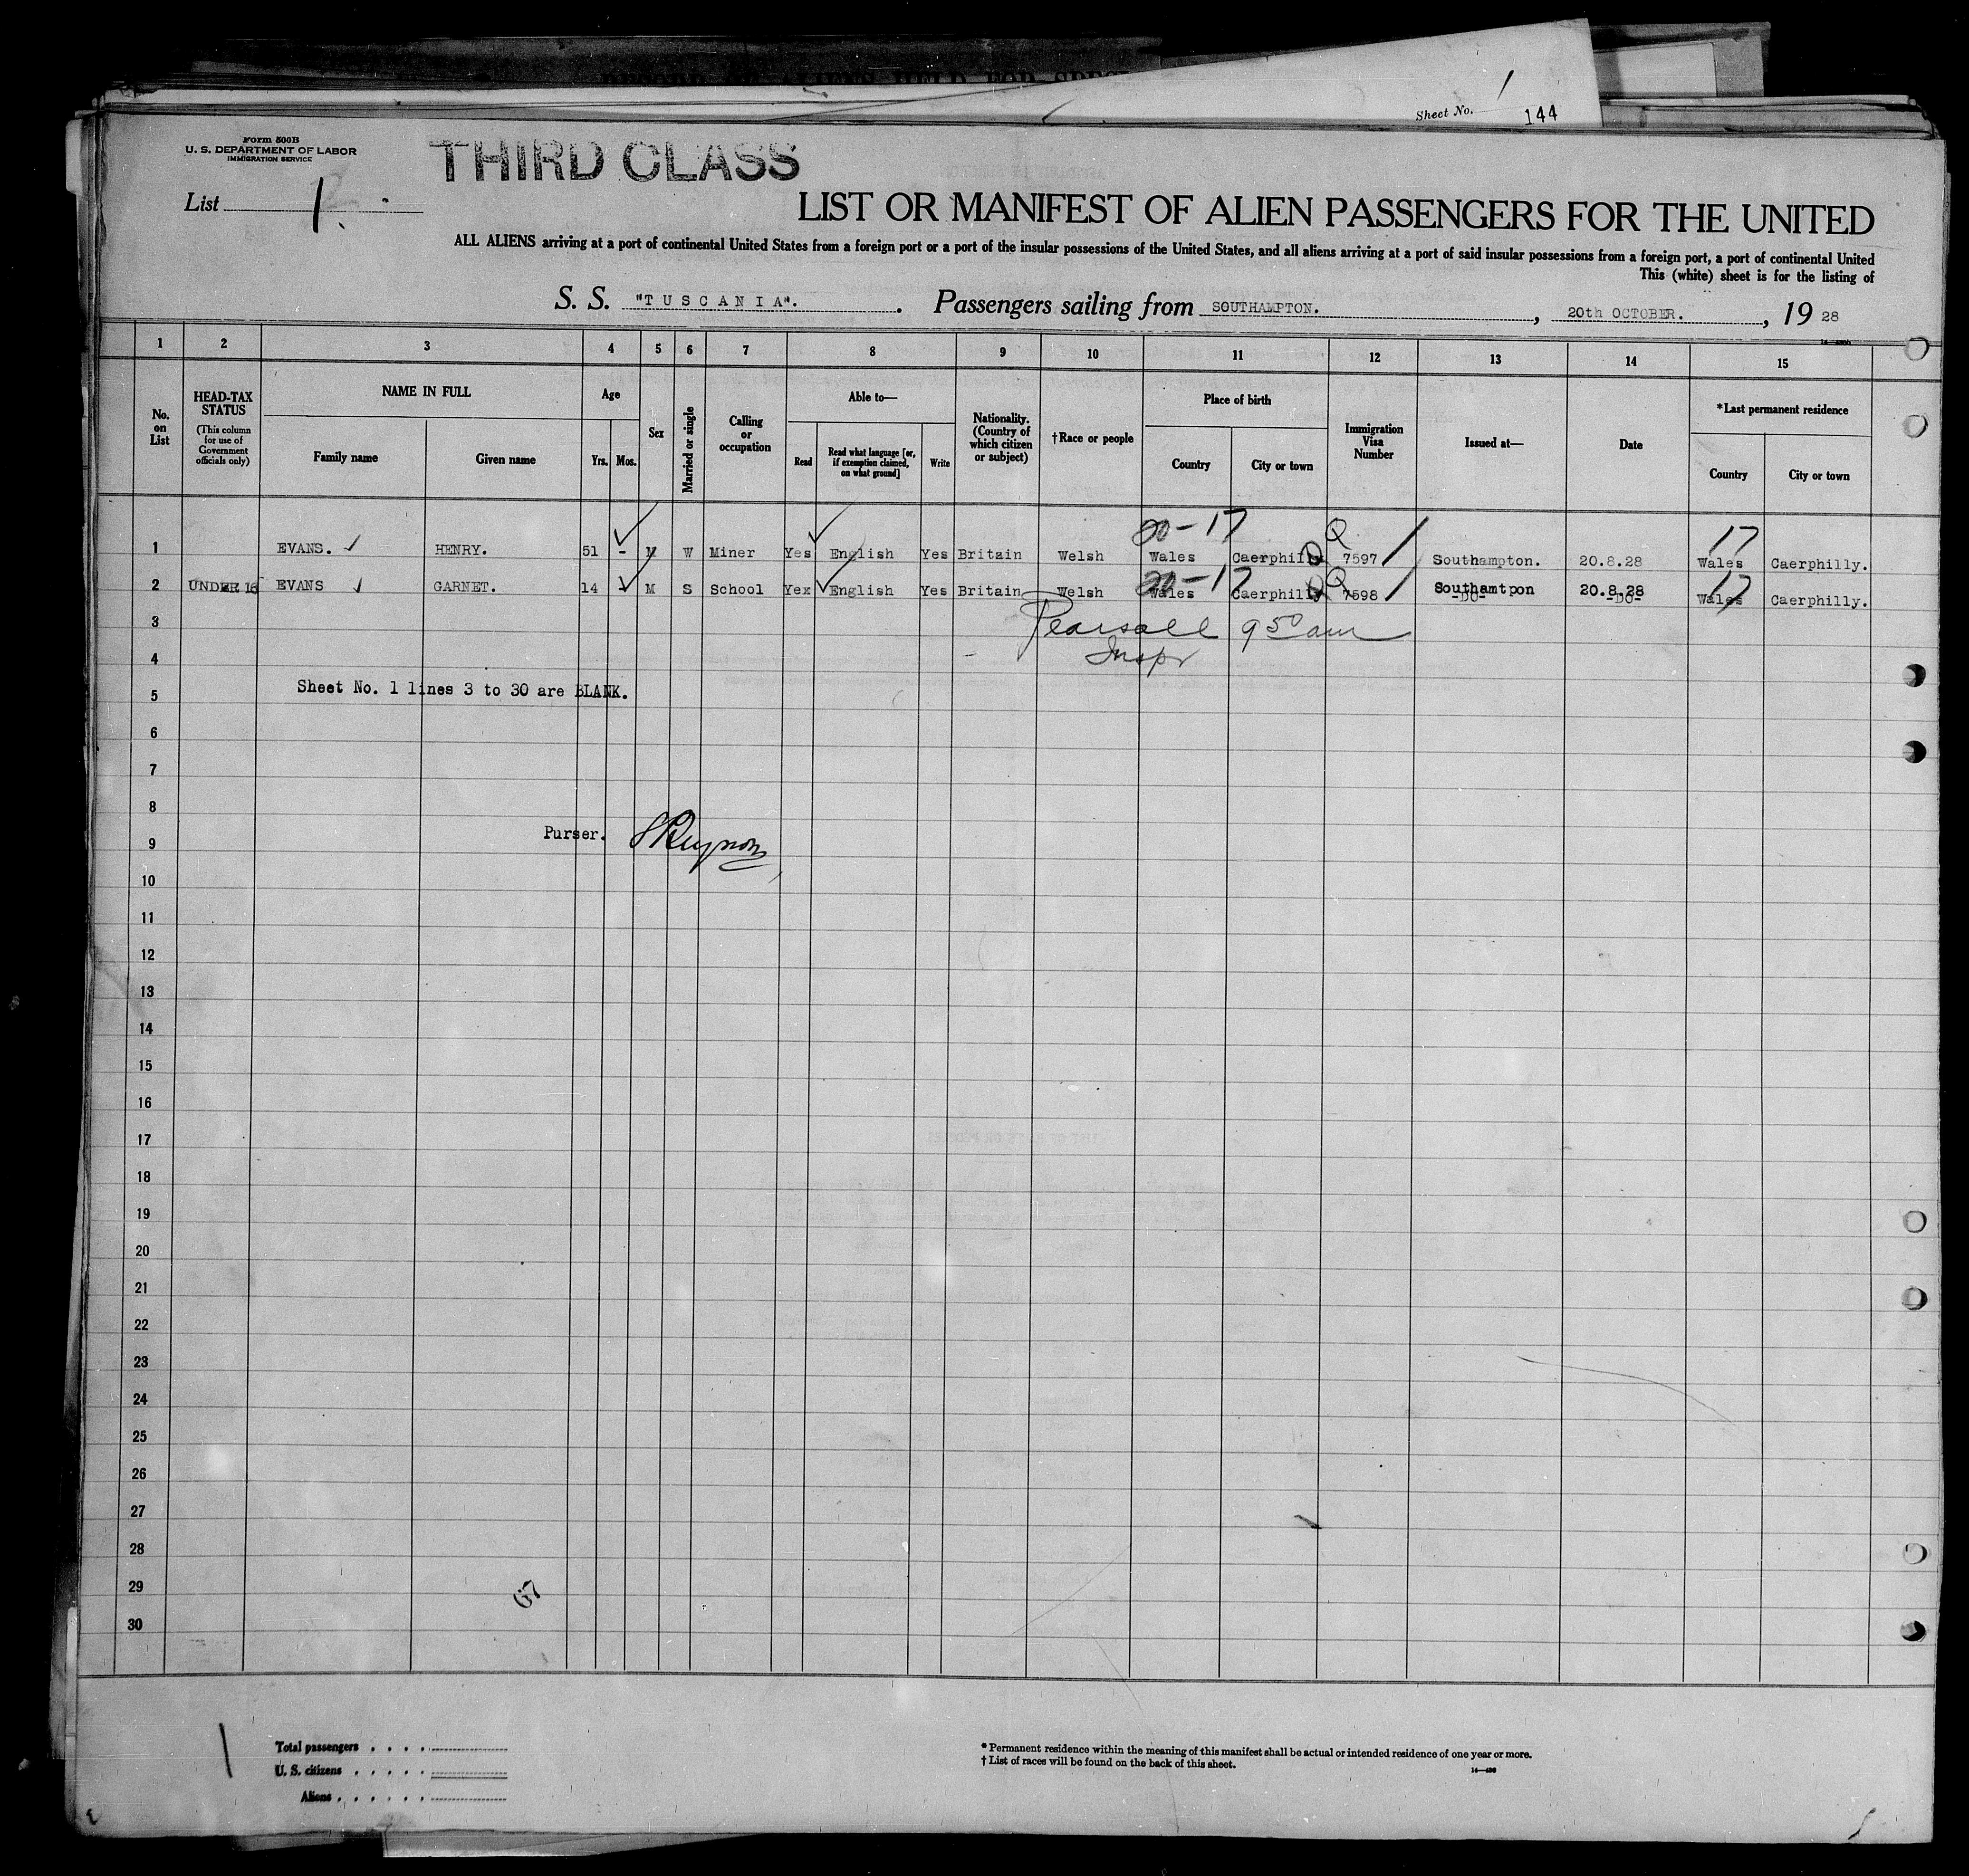 Sheet No. 1
144
Form 500B
U. S. DEPARTMENT OF LABOR
IMMIGRATION SERVICE
THIRD CLASS
List 1.
LIST OR MANIFEST OF ALIEN PASSENGERS FOR THE UNITED
ALL ALIENS arriving at a port of continental United States from a foreign port or a port of the insular possessions of the United States, and all aliens arriving at a port of said insular possessions from a foreign port, a port of continental United
This (white) sheet is for the listing of
S. S. "TUSCANIA". Passengers sailing from SOUTHAMPTON., 20th OCTOBER., 19 28
1 2 3 4 5 6 7 8 9 10 11 12 13 14 15
No. on List
HEAD-TAX STATUS
(This column for use of Government officials only)
NAME IN FULL
Family name
Given name
Age
Yrs. Mos.
Sex
Married or single
Calling or occupation
Able to—
Read
Read what language [or, if exemption claimed, on what ground]
Write
Nationality. (Country of which citizen or subject)
†Race or people
Place of birth
Country
City or town
Immigration Visa Number
Issued at—
Date
*Last permanent residence
Country
City or town
20-17 Q 17
1 EVANS. HENRY. 51 - M W Miner Yes English Yes Britain Welsh Wales Caerphilly 7597 Southampton. 20.8.28 Wales Caerphilly.
20-17 Q 17
2 UNDER 16 EVANS GARNET. 14 M S School Yex English Yes Britain Welsh Wales Caerphilly 7598 Southamtpon -DO- 20.8.28 -DO- Wales Caerphilly.
3 Pearsall 9 50 am
4 Inspr
5 Sheet No. 1 lines 3 to 30 are BLANK.
6
7
8
Purser.
9
10
11
12
13
14
15
16
17
18
19
20
21
22
23
24
25
26
27
28
29
67
30
Total passengers
U. S. citizens
Aliens
* Permanent residence within the meaning of this manifest shall be actual or intended residence of one year or more.
† List of races will be found on the back of this sheet.